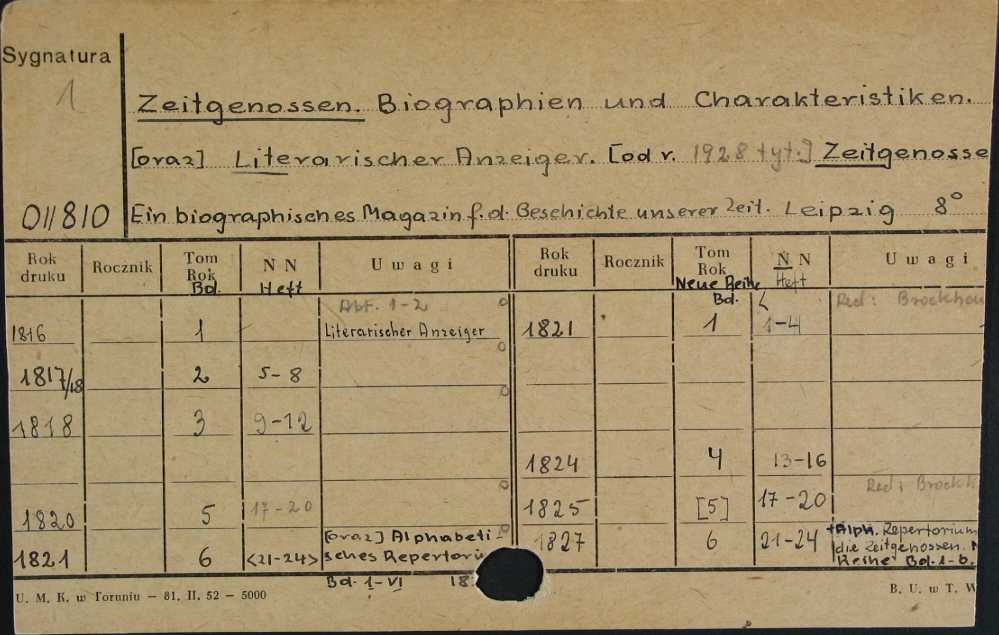 Sygnatura
1
Zeitgenossen. Biographien und Charakteristiken.
[oraz] Literarischer Anzeiger. [od r. 1928 tyt.] Zeitgenosse
011810 Ein biographisches Magazin f. d. Geschichte unserer Zeit. Leipzig 8°
Rok druku Rocznik Tom Rok Bd. NN Heft Uwagi
Abt. 1-2
1816 1 Literarischer Anzeiger
1817/18 2 5-8
1818 3 9-12
1820 5 17-20
1821 6 <21-24> [oraz] Alphabeti-
sches Repertoriu
Bd. I-VI 18
Rok druku Rocznik Tom Rok Neue Reihe Bd. NN Heft Uwagi
Red: Brockhau
1821 1 1-4
1824 4 13-16
Red: Brockh
1825 [5] 17-20
1827 6 21-24 +Alph. Repertorium
die Zeitgenossen. N
Reihe Bd. 1-6.
U. M. K. w Toruniu — 81. II. 52 — 5000
B. U. w T. W